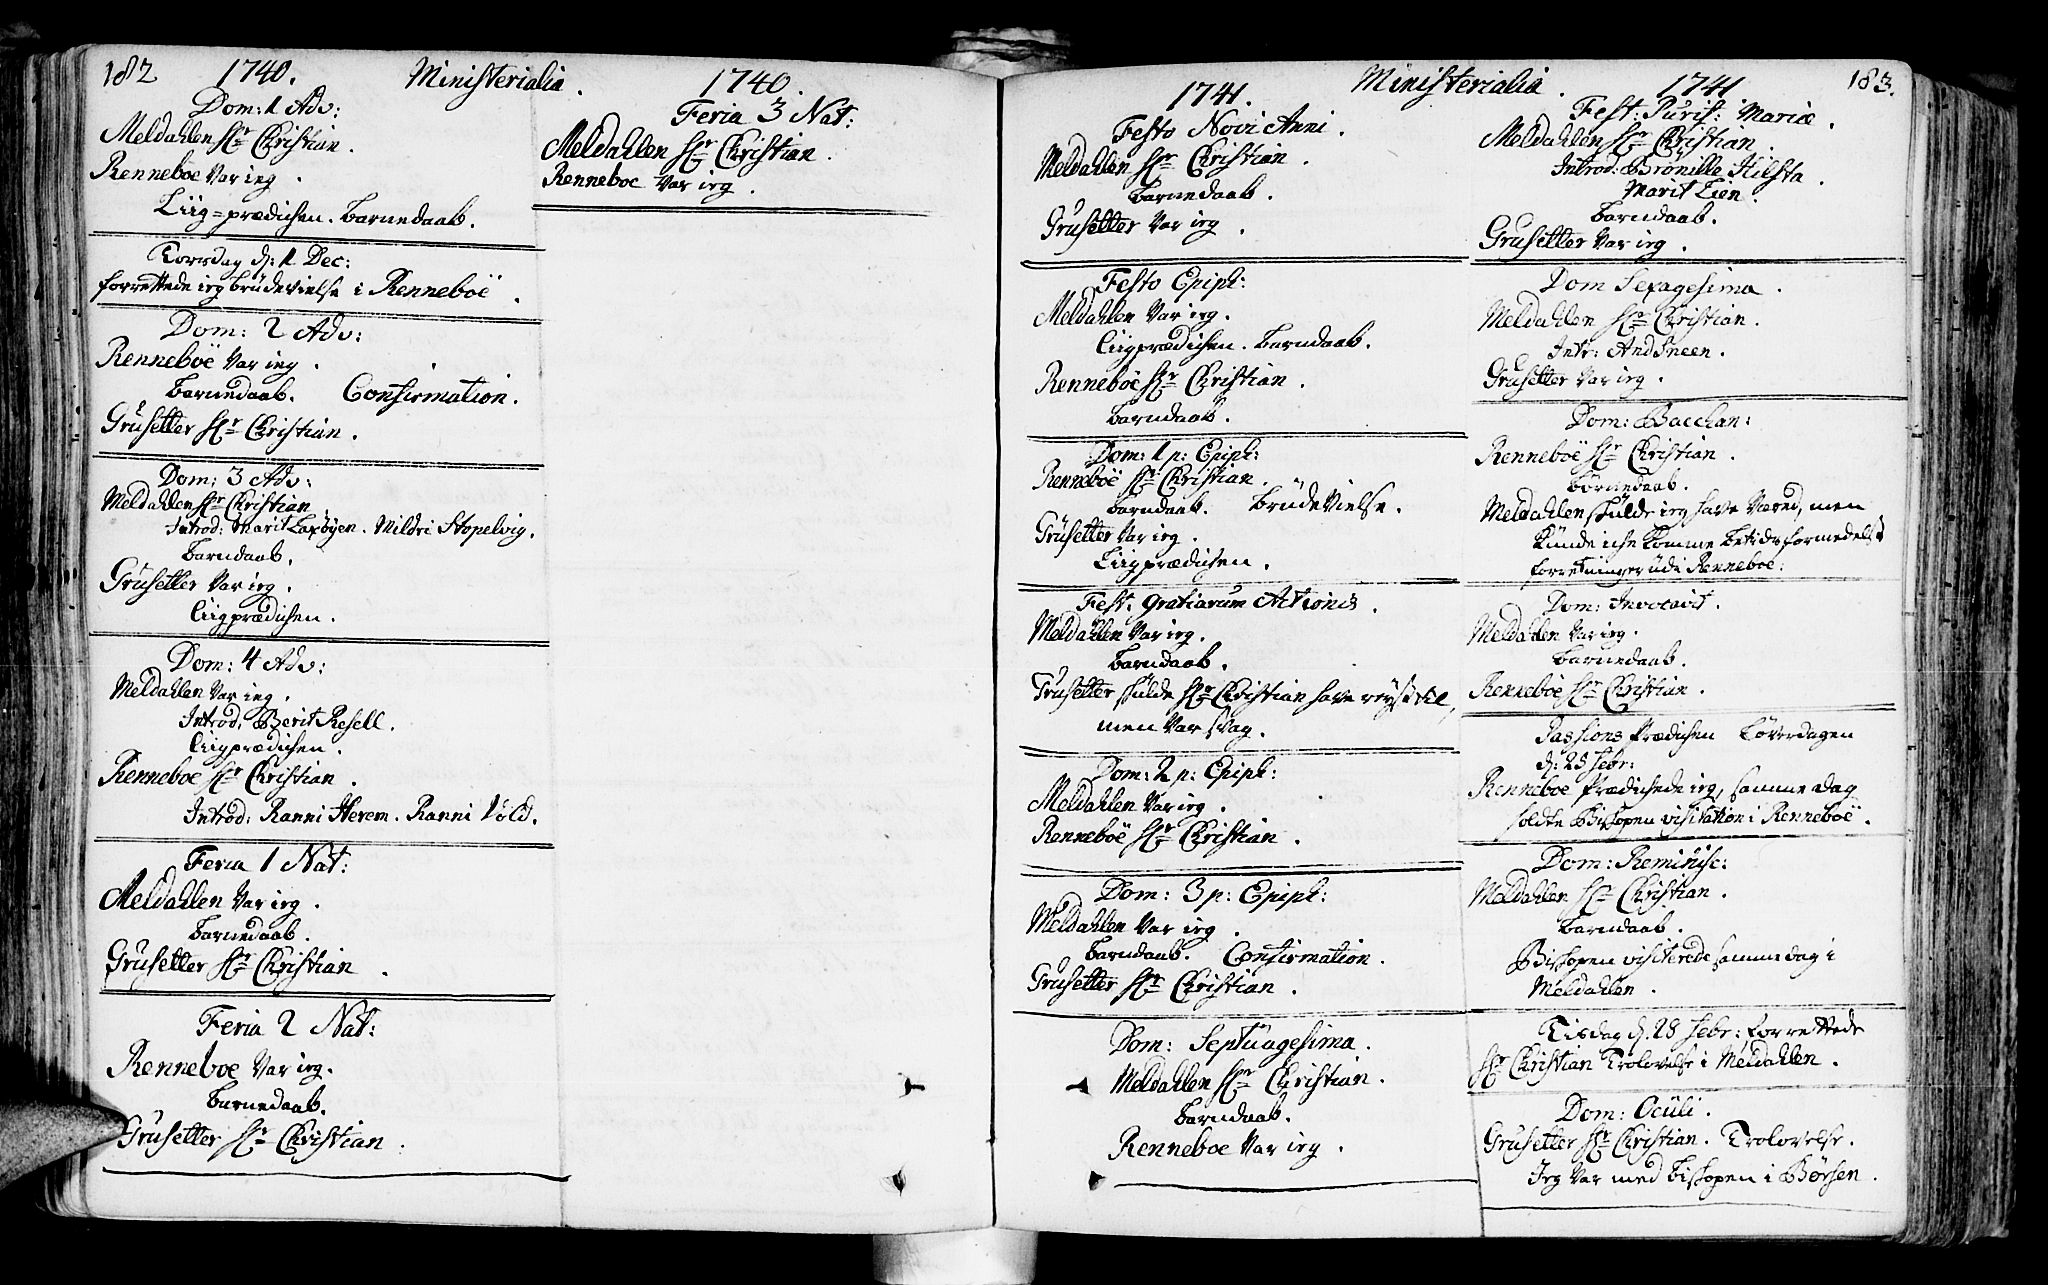 182 1740. Ministerialia. 1740.
Dom: 1 Adv:
Meldahlen Hr Christian.
Renneboe var ieg.
Liig=prædichen. barnedaab.
Torsdag d: 1 Dec:
forrettede ieg brüdevielse i Renneböe.
Dom: 2 Adv:
Renneböe var ieg.
barnedaab. Confirmation.
Grüsetter Hr Christian.
Dom: 3 Adv:
Meldahlen Hr Christian.
Introd: Marit Laxøyen. Mildri Stopelvig.
barndaab.
Grüsetter var ieg.
Liigprædichen.
Dom: 4 Adv:
Meldahlen var ieg.
Introd. Berit Resell.
Liigprædichen.
Renneboe Hr Christian.
Introd: Ranni Herem. Ranni Vold.
Feria 1 Nat:
Meldahlen var ieg.
barnedaab.
Grüsetter Hr Christian.
Feria 2 Nat:
Renneboe var ieg.
barnedaab.
Grüsetter Hr Christian.
Feria 3 Nat:
Meldahlen Hr Christian.
Renneboe var ieg.
1741. Ministerialia. 1741 183.
Festo Novi Anni.
Meldahlen Hr Christian.
barnedaab.
Grüsetter var ieg.
Festo Epiph:
Meldahlen var ieg.
Liigprædichen. barndaab.
Renneböe Hr Christian.
barndaab.
Dom: 1 p: Epiph:
Renneböe Hr Christian.
barndaab. brüdevielse.
Grüsetter var ieg.
Liigprædichen.
Fest. Gratiarum Actionis.
Meldahlen var ieg.
barndaab.
Grüsetter skulde Hr Christian have reyst til,
men var svag.
Dom: 2 p: Epiph:
Meldahlen var ieg.
Renneböe Hr Christian.
Dom: 3 p: Epiph:
Meldahlen var ieg.
barndaab. Confirmation.
Grüsetter Hr Christian.
Dom: Septuagesima.
Meldahlen Hr Christian.
barndaab.
Renneboe var ieg.
Fest: Purif: Mariæ.
Meldahlen Hr Christian.
Introd: Brønille Hilsta.
Marit Lien.
barndaab.
Grüsetter var ieg.
Dom Sexagesima.
Meldahlen Hr Christian.
Intr: And Sneen.
Grüsetter var ieg.
Dom: Bacchan:
Renneböe Hr Christian.
børnedaab.
Meldahlen skulde ieg have været, men
kunde iche komme betids formedelst
forretninger udi Renneboe:
Dom: Invocavit.
Meldahlen var ieg.
barnedaab.
Renneböe Hr Christian.
Passions Prædichen Løverdagen
d: 25 Febr:
Renneboe Prædichede ieg, samme dag
holdte Bispen visitation i Renneböe.
Dom: Reminisc:
Meldahlen Hr Christian.
barndaab.
Bispen visiterede samme dag i
Meldahlen.
Tisdag d. 28 Febr: forrettede
Hr Christian Trolovelse i Meldahlen.
Dom: Oculi.
Grüsetter Hr Christian. Trolovelse.
Jeg var med bispen i Börsen.